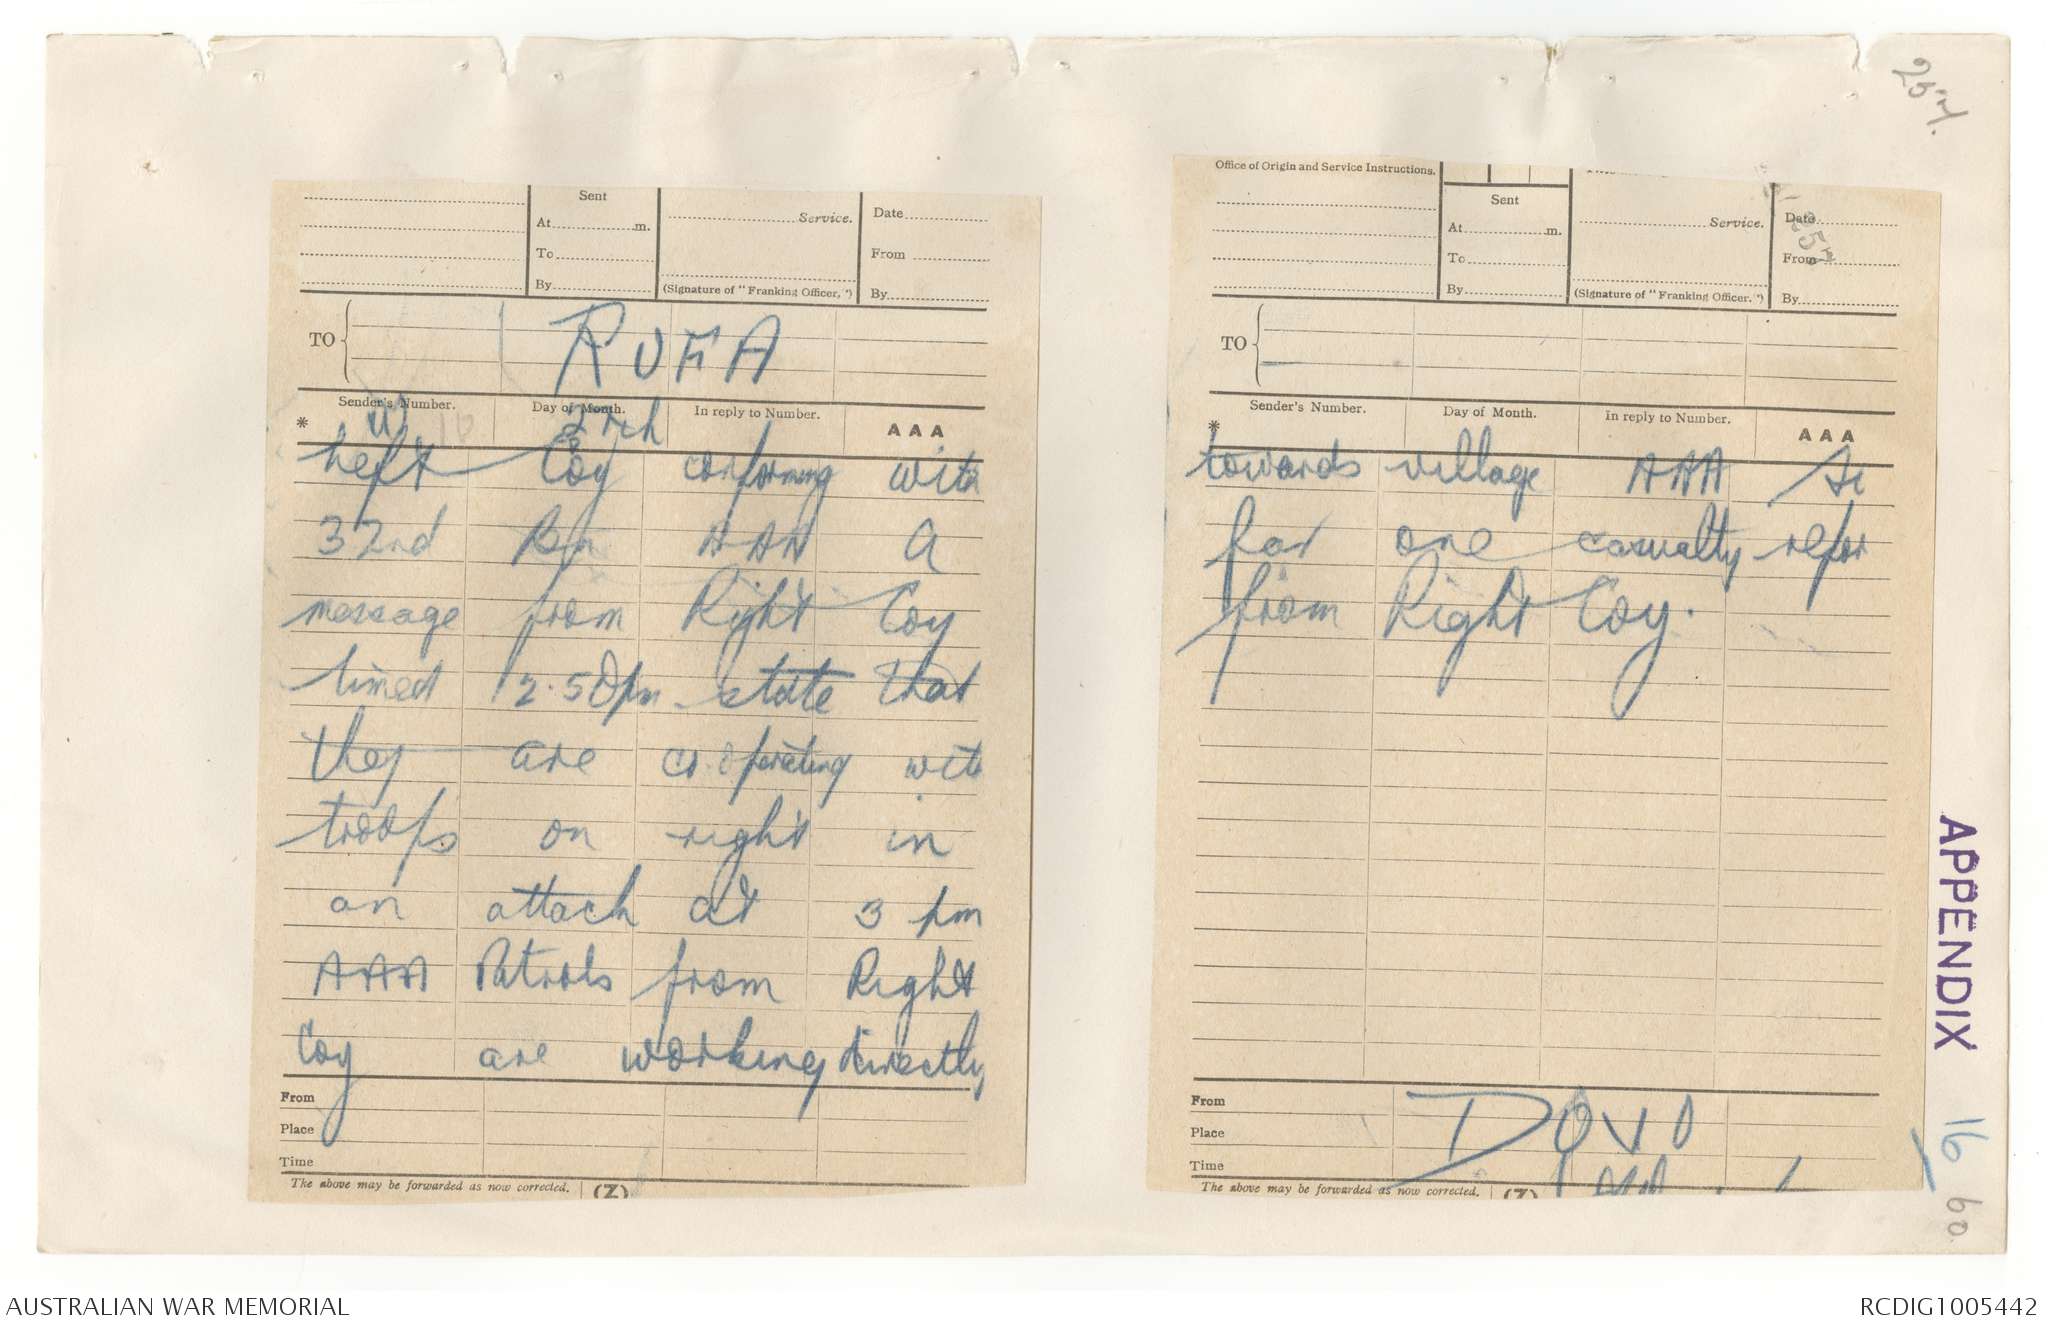 Sent
At ............ m.
To ............
By ............
Service.
(Signature of "Franking Officer.")
Date
From
By
TO
RUFA
Sender's Number.
Day of Month.
In reply to Number.
AAA
*
W
Left Coy conforming with
32nd Bn AAA A
message from Right Coy
timed 2.50pm state that
they are co.operating with
troops on right in
an attack at 3 pm
AAA Patrols from Right
Coy are working directly
From
Place
Time
The above may be forwarded as now corrected.
(Z)
Office of Origin and Service Instructions.
Sent
At ............ m.
To ............
By ............
Service.
(Signature of "Franking Officer.")
Date
From
By
TO
Sender's Number.
Day of Month.
In reply to Number.
AAA
*
towards village AAA
far one casualty repor
from Right Coy.
From
Place
Time
DOVO
The above may be forwarded as now corrected.
(Z)
APPENDIX
16
60
AUSTRALIAN WAR MEMORIAL
RCDIG1005442